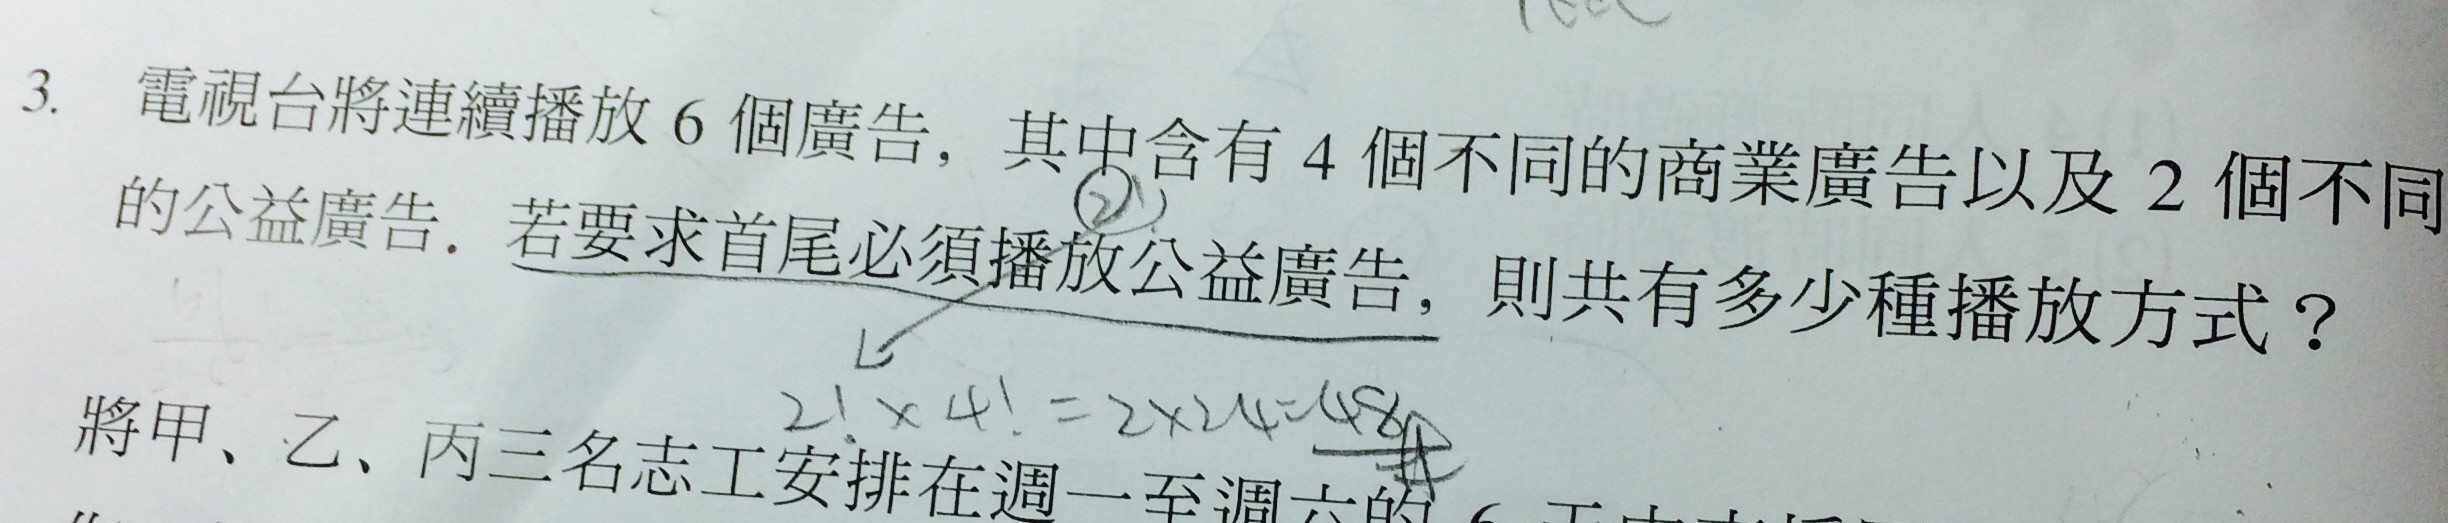 3. 電視台將連續播放 6 個廣告，其中含有 4 個不同的商業廣告以及 2 個不同
2!
的公益廣告．若要求首尾必須播放公益廣告，則共有多少種播放方式？
2! × 4! = 2×24=48#
將甲、乙、丙三名志工安排在週一至週六的 6 天